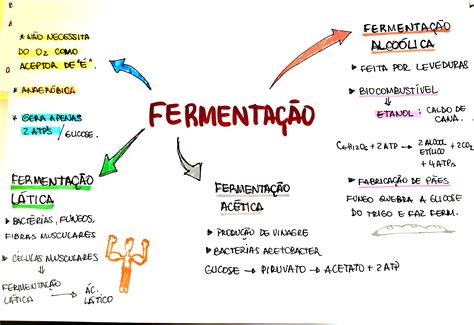 * NÃO NECESSITA
DO O2 COMO
ACEPTOR DE "E-".
* ANAERÓBIDA
* GERA APENAS
2 ATPS / GLICOSE.
FERMENTAÇÃO
FERMENTAÇÃO
ALCOÓLICA
▸ FEITA POR LEVEDURAS
▸ BIOCOMBUSTÍVEL
→ ETANOL: CALDO DE
CANA.
C6H12O6 + 2 ATP → 2 ÁLCOOL ETÍLICO + 2CO2
+ 4 ATPs
▸ FABRICAÇÃO DE PÃES
FUNGO QUEBRA A GLICOSE
DO TRIGO E FAZ FERM.
FERMENTAÇÃO
LÁTICA
▸ BACTÉRIAS, FUNGOS,
FIBRAS MUSCULARES
▸ CÉLULAS MUSCULARES
FERMENTAÇÃO
LÁTICA → ÁC.
LÁTICO
FERMENTAÇÃO
ACÉTICA
▸ PRODUÇÃO DE VINAGRE
▸ BACTÉRIAS ACETOBACTER
GLICOSE → PIRUVATO → ACETATO + 2 ATP